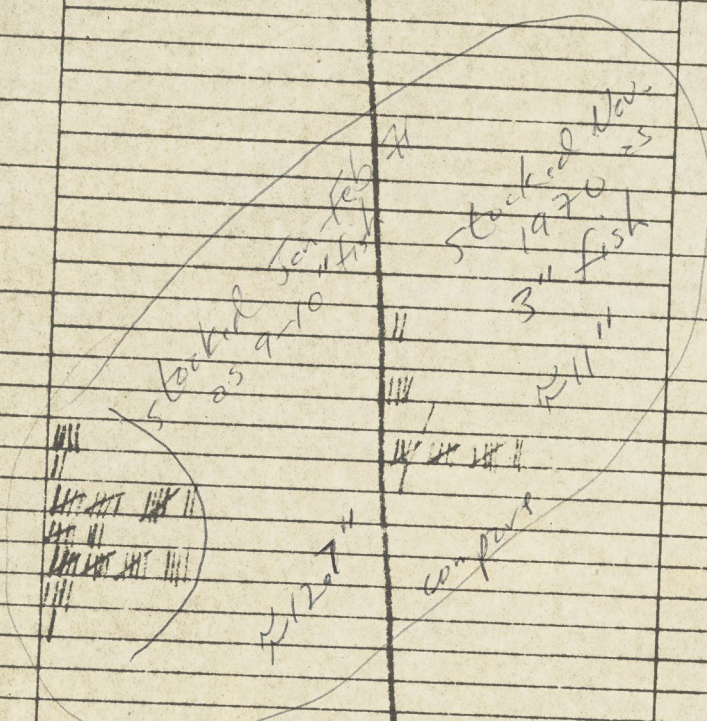 stocked Jan-Feb 71
as 9-10" fish
≈12.7"
stocked Nov.
1970 as
3" fish
≈11"
compare